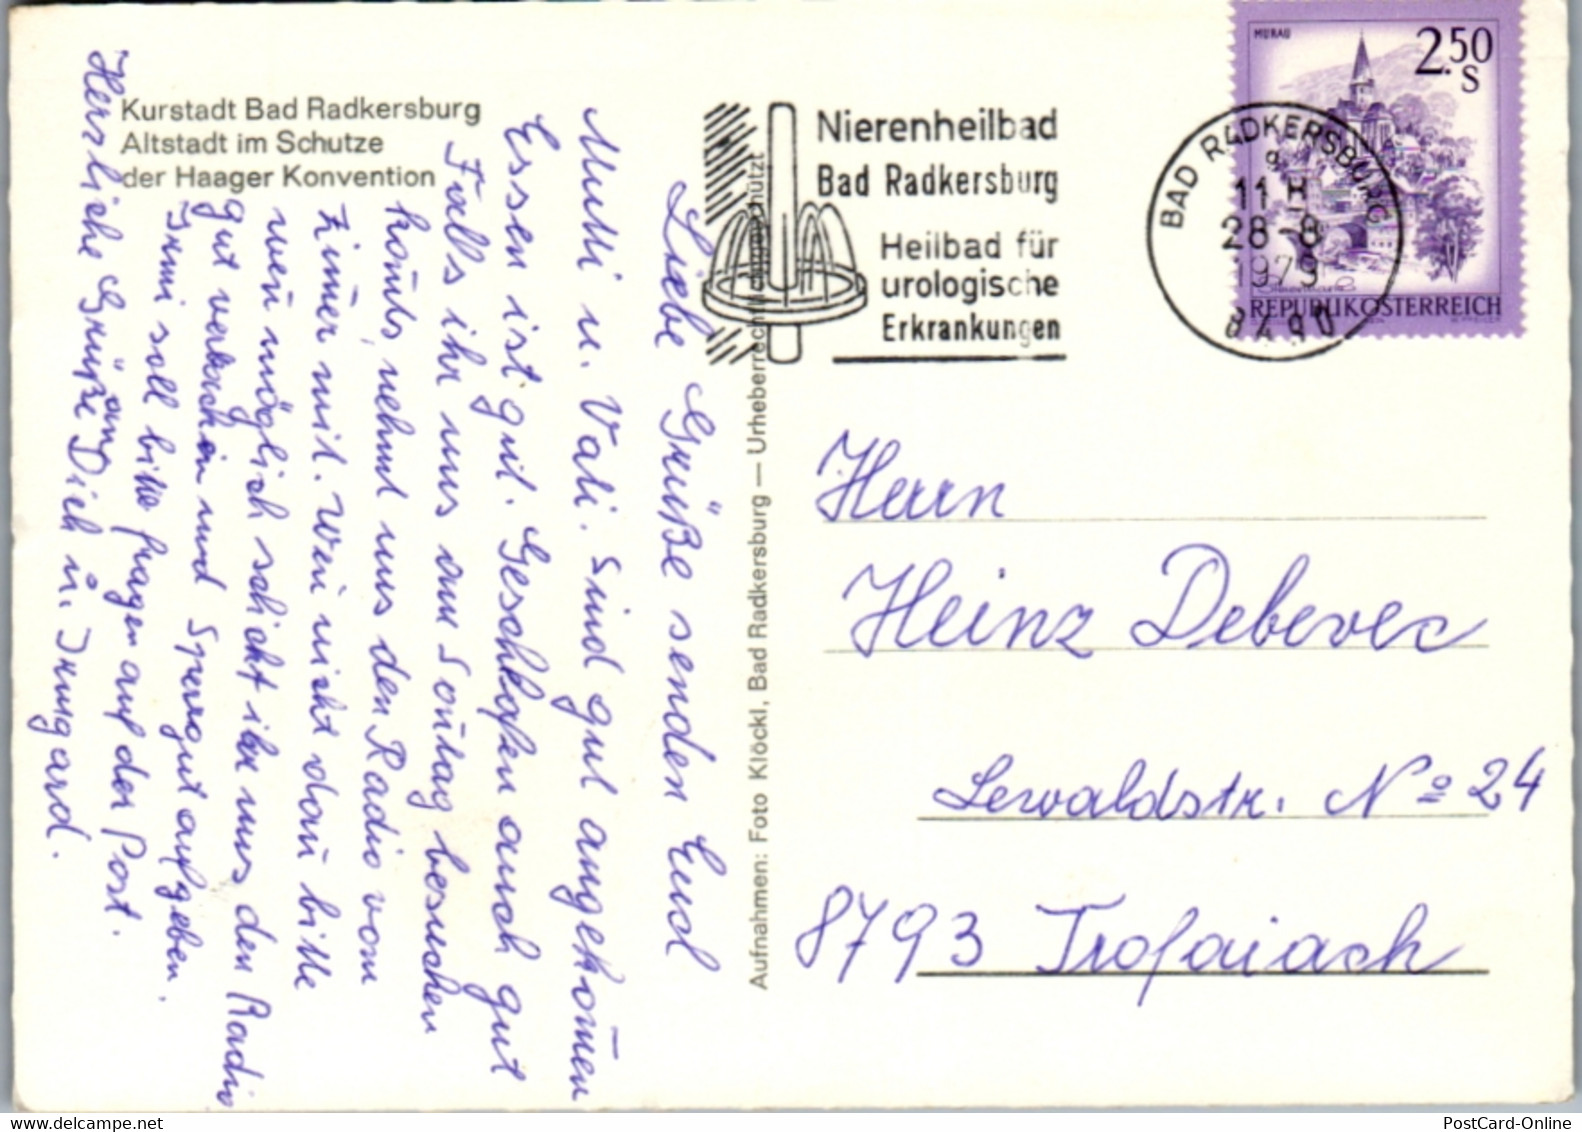 Kurstadt Bad Radkersburg
Altstadt im Schutze
der Haager Konvention
Liebe Grüße senden Euch
Mutti u. Vati. Sind gut angekom̄en
Essen ist gut. Geschlafen auch gut
Falls ihr uns am Son̄tag besuchen
kom̄t, nehmt uns den Radio vom
Zim̄er mit. Wen̄ nicht dan̄ bitte
wen̄ möglich schickt ihr uns den Radio
gut verpacken und Sperrgut aufgeben.
Irmi soll bitte fragen auf der Post.
Herzliche Grüße an Dich u. Irmgard.
Aufnahmen: Foto Klöckl, Bad Radkersburg — Urheberrechtlich geschützt
Nierenheilbad
Bad Radkersburg
Heilbad für
urologische
Erkrankungen
BAD RADKERSBURG
11 H
28-8
1979
8490
MURAU
2.50
S
REPUBLIK ÖSTERREICH
Herrn
Heinz Debevec
Lewaldstr. No 24
8793 Trofaiach
PostCard-Online